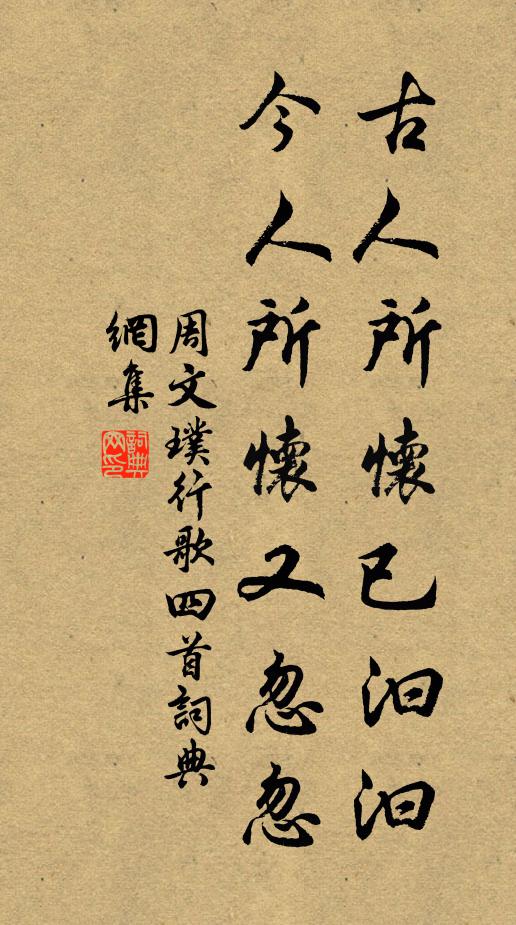 古人所懷已汩汩
今人所懷又忽忽
周文璞行歌四首詞典
網集
詞典网印